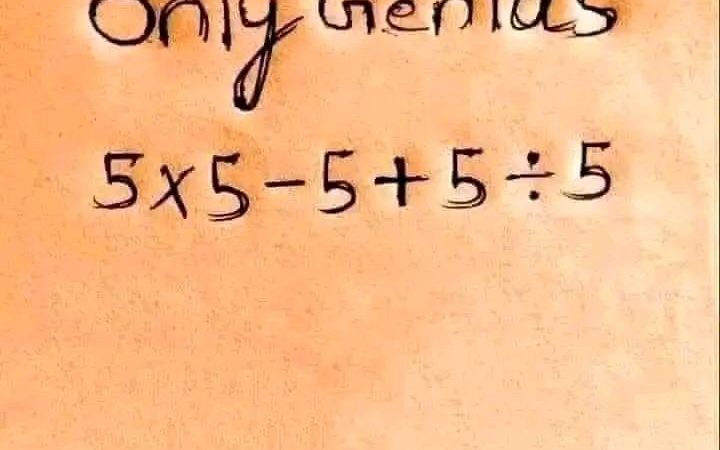 Only Genius
5x5-5+5÷5